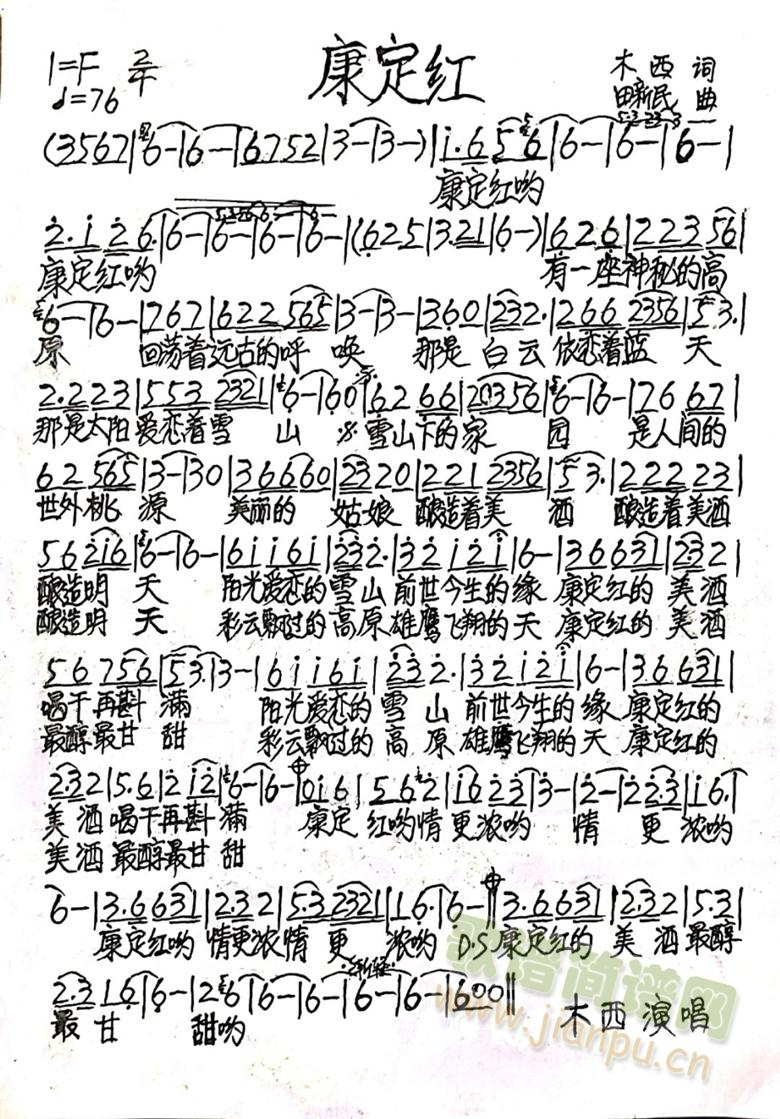 康定红
1=F 2/4
♩=76
木西 词
田新民 曲
(3567|6-|6-|6752|3-|3-)|i.6 5 6|6-|6-|6-|
康定红哟
2.i 2 6.|6-|6-|6-|6-|(6 2 5|3.21|6-)|6 2 6|2 2 3 56|
康定红哟 有一座神秘的高
6-|6-|767|622 565|3-|3-|360|232.|266 2356|5 3.|
原 回荡着远古的呼 唤 那是 白云 依恋着蓝 天
2.223|553 2321|6-|60|62 66|203 56|6-|6-|76 67|
那是太阳 爱恋着雪 山 雪山下的家 园 是人间的
62 565|3-|30|36660|2320|221 2356|5 3.|222 23|
世外桃 源 美丽的 姑娘 酿造着美 酒 酿造着美酒
56 2i6|6-|6-|6ii6i|232.|32 i2i|6-|36631|232|
酿造明 天 阳光爱恋的 雪山 前世今生的缘 康定红的 美酒
酿造明 天 彩云飘过的 高原 雄鹰飞翔的天 康定红的 美酒
56756|53.|3-|6ii6i|232.|32 i2i|6-|36631|
喝干再斟 满 阳光爱恋的 雪 山 前世今生的 缘 康定红的
最醇最甘 甜 彩云飘过的 高 原 雄鹰飞翔的 天 康定红的
2.32|5.6|2 i2|6-|6-|0i6|562|i623|3-|2-|2 2.3|i6.|
美 酒 喝干再斟 满 康定 红哟情 更浓哟 情 更 浓哟
美 酒 最醇最甘 甜
6-|3.6631|2.32|5.3 2321|16.|6-||3.6631|2.32|5.3|
康定红哟 情更浓情 更 浓哟 D.S 康定红的 美 酒 最醇
2.3 16|6-|2 6|6-|6-|6-|6-|6-|600||
最 甘 甜哟
木西演唱
歌谱简谱网
www.jianpu.cn